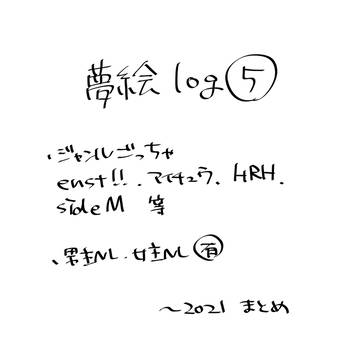 夢絵log⑤
・ジャンルごっちゃ
enst!!.アイチュウ.HRH.
sideM 等
、男主NL.女主NL㊒
～2021 まとめ